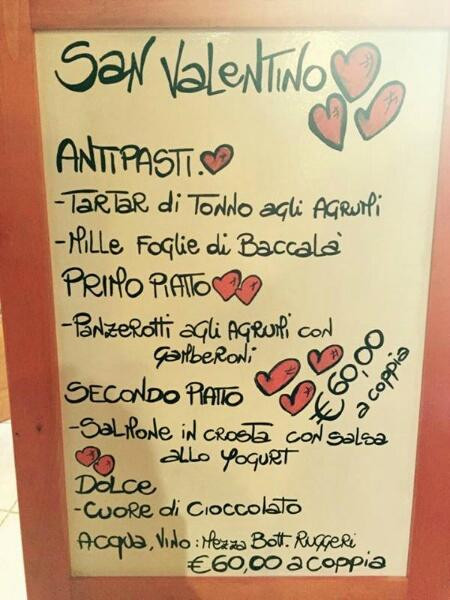 San Valentino
ANTIPASTI.
-TARTAR di TONNO agli AGRUMI
-Mille Foglie di Baccalà
PRIMO PIATTO
-Panzerotti agli AGRUMI con
gamberoni
€60,00
a coppia
SECONDO PIATTO
-SALMONE in CROSTA con salsa
allo YOGURT
DOLCE
-Cuore di Cioccolato
Acqua, Vino: Mezza Bott. Ruggeri
€60,00 a coppia